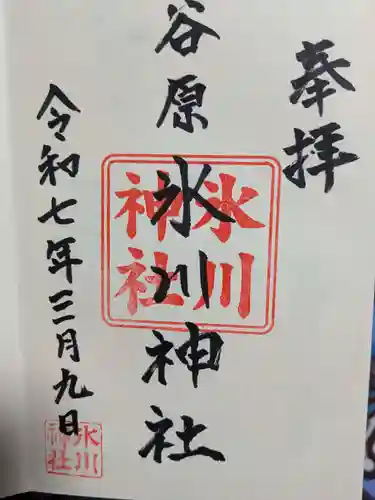 奉拝
谷原氷川神社
氷川神社
令和七年三月九日
氷川神社